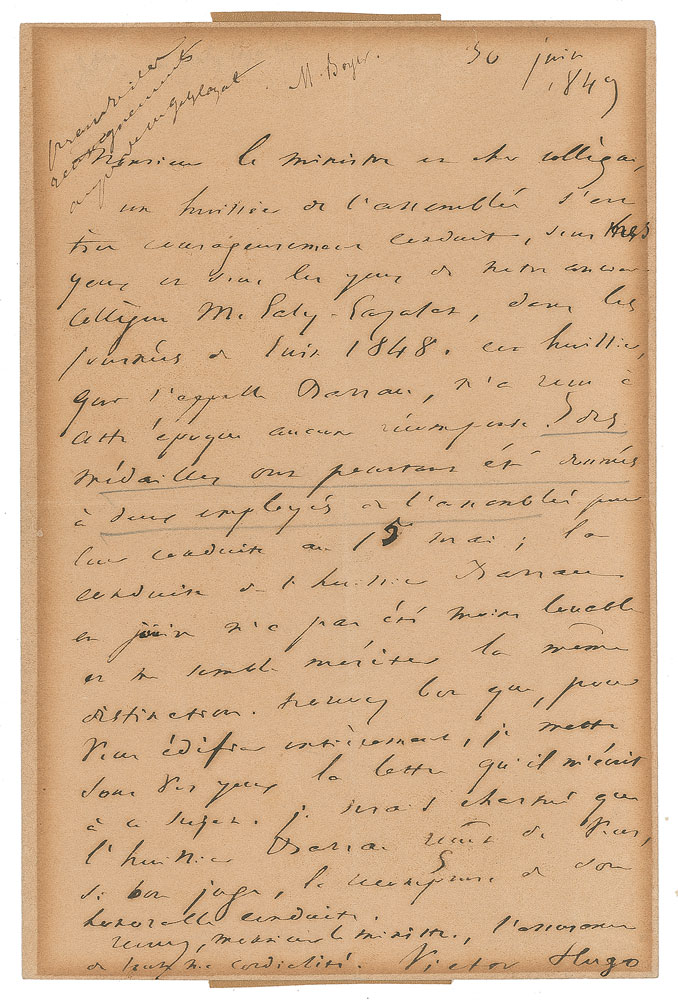 prendre des
renseignements
auprès de M. Galy Cazalat
M. Boyer.
30 juin
1849
Monsieur le ministre et cher collègue,
un huissier de l'assemblée s'est
très courageusement conduit, sous mes
yeux et sous les yeux de notre ancien
collègue M. Galy-Cazalat, dans les
journées de Juin 1848. cet huissier,
qui s'appelle Barrau, n'a reçu à
cette époque aucune récompense. Des
médailles ont pourtant été données
à deux employés de l'assemblée pour
leur conduite au 15 mai ; la
conduite de l'huissier Barrau
en juin n'a pas été moins louable
et me semble mériter la même
distinction. trouvez bon que, pour
vous édifier entièrement, je mette
sous vos yeux la lettre qu'il m'écrit
à ce sujet. je serais charmé que
l'huissier Barrau reçût de vous,
si bon juge, la récompense de son
honorable conduite.
recevez, monsieur le ministre, l'assurance
de toute ma cordialité. Victor Hugo